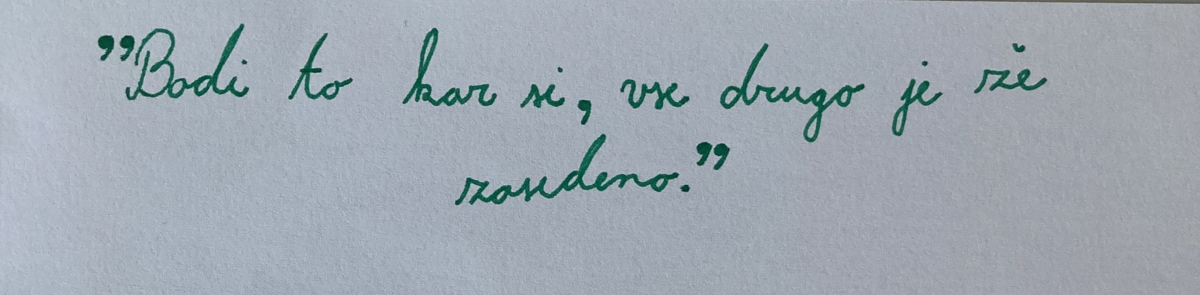 ”Bodi to kar si, vse drugo je že
zasedeno.”